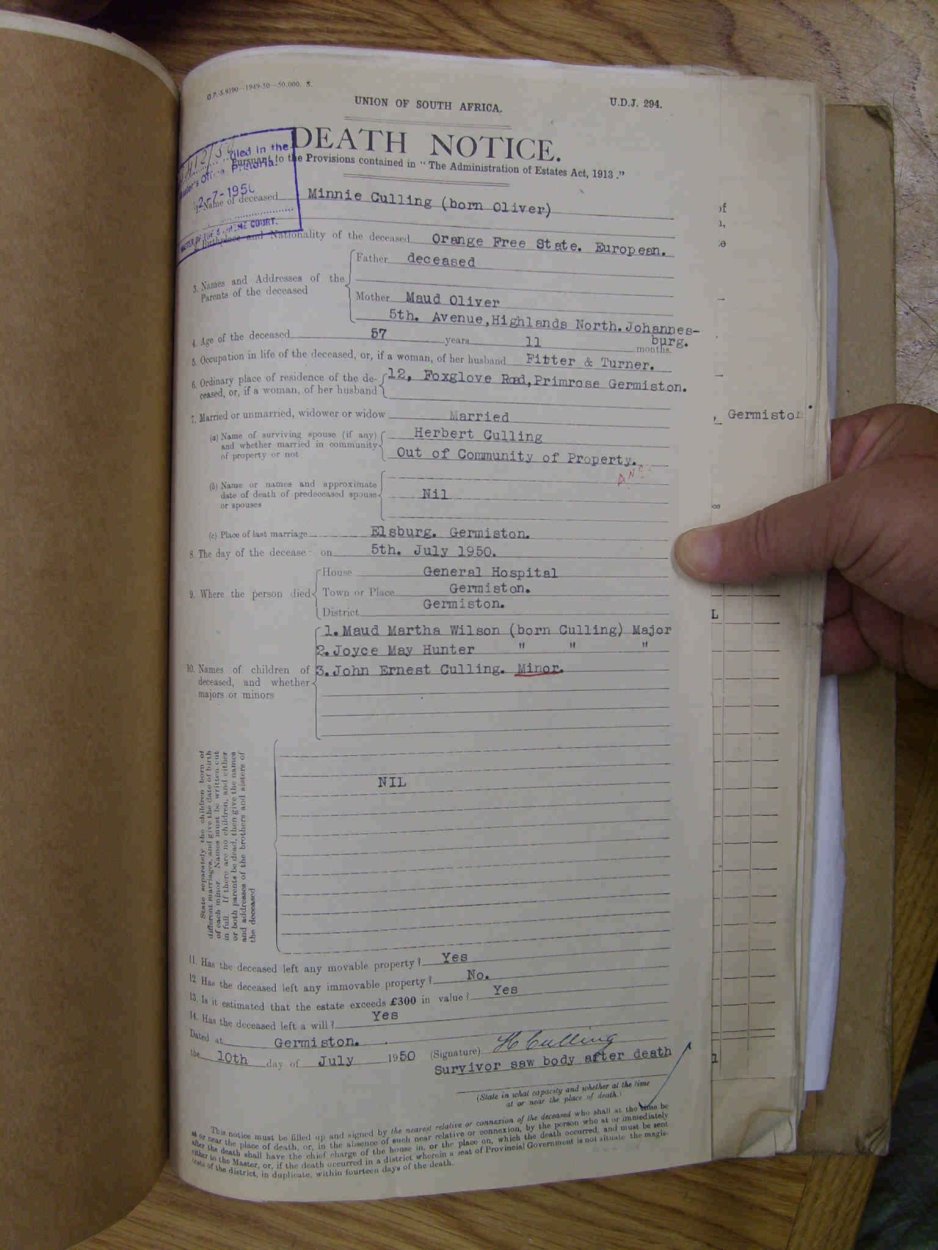 O.P.-S.9390—1949-50—50,000. S.
UNION OF SOUTH AFRICA.
U.D.J. 294.
DEATH NOTICE.
Pursuant to the Provisions contained in "The Administration of Estates Act, 1913."
Filed in the
Office Pretoria.
-7-195
COURT.
Name of deceased Minnie Culling (born Oliver)
Birthplace and Nationality of the deceased Orange Free State. European.
3. Names and Addresses of the Parents of the deceased
Father deceased
Mother Maud Oliver
5th. Avenue,Highlands North.Johannes-
burg.
4. Age of the deceased 57 years 11 months.
5. Occupation in life of the deceased, or, if a woman, of her husband Fitter & Turner.
6. Ordinary place of residence of the de-
ceased, or, if a woman, of her husband
12, Foxglove Road,Primrose Germiston.
7. Married or unmarried, widower or widow Married
(a) Name of surviving spouse (if any)
and whether married in community
of property or not
Herbert Culling
Out of Community of Property.
(b) Name or names and approximate
date of death of predeceased spouse
or spouses
Nil
(c) Place of last marriage Elsburg. Germiston.
8. The day of the decease on 5th. July 1950.
9. Where the person died
House General Hospital
Town or Place Germiston.
District Germiston.
10. Names of children of
deceased, and whether
majors or minors
1. Maud Martha Wilson (born Culling) Major
2. Joyce May Hunter " " "
3. John Ernest Culling. Minor.
State separately the children born of
different marriages, and give the date of birth
of each minor. Names must be written out
in full. If there are no children, and either
or both parents be dead, then give the names
and addresses of the brothers and sisters of
the deceased
NIL
11. Has the deceased left any movable property? Yes
12. Has the deceased left any immovable property? No.
13. Is it estimated that the estate exceeds £300 in value? Yes
14. Has the deceased left a will? Yes
Dated at Germiston.
the 10th day of July 1950 (Signature) H Culling
Survivor saw body after death
(State in what capacity and whether at the time
at or near the place of death.)
This notice must be filled up and signed by the nearest relative or connexion of the deceased who shall at the time be
at or near the place of death, or, in the absence of such near relative or connexion, by the person who at or immediately
after the death shall have the chief charge of the house in, or the place on, which the death occurred, and must be sent
either to the Master, or, if the death occurred in a district wherein a seat of Provincial Government is not situate the magis-
trate of the district, in duplicate, within fourteen days of the death.
, Germiston